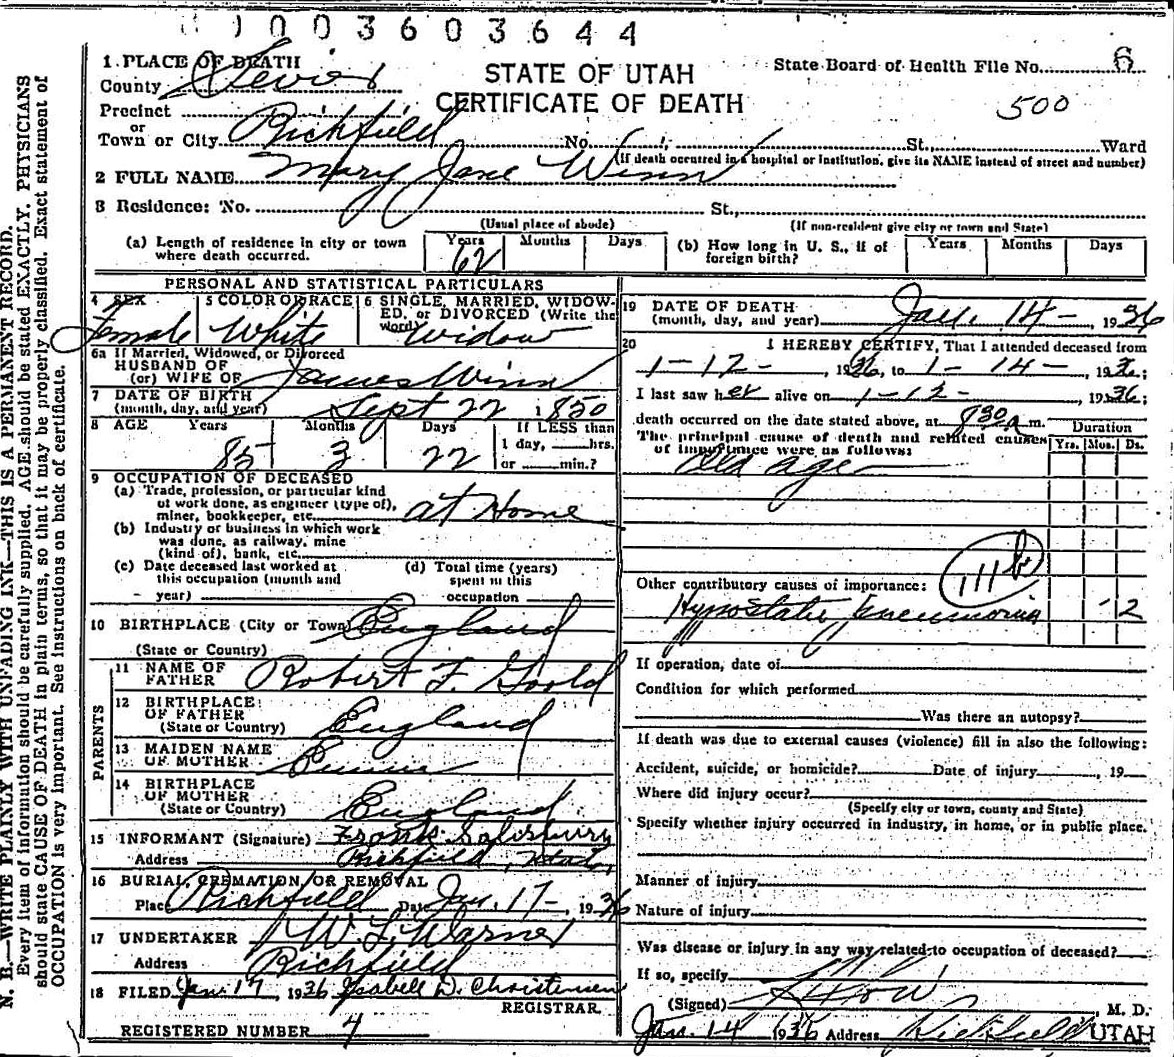 1003603644
1 PLACE OF DEATH
County Sevier
STATE OF UTAH
CERTIFICATE OF DEATH
State Board of Health File No. 6
500
Precinct
or
Town or City Richfield No. St., Ward
(If death occurred in a hospital or institution, give its NAME instead of street and number)
2 FULL NAME Mary Jane Winn
3 Residence: No. St.,
(Usual place of abode) (If non-resident give city or town and State)
(a) Length of residence in city or town where death occurred. Years 62 Months Days
(b) How long in U. S., if of foreign birth? Years Months Days
PERSONAL AND STATISTICAL PARTICULARS
4 SEX Female
5 COLOR OR RACE White
6 SINGLE, MARRIED, WIDOWED, or DIVORCED (Write the word) Widow
6a If Married, Widowed, or Divorced
HUSBAND OF
(or) WIFE OF James Winn
7 DATE OF BIRTH
(month, day, and year) Sept 22 1850
8 AGE Years Months Days If LESS than
85 3 22 1 day, hrs.
or min.?
9 OCCUPATION OF DECEASED
(a) Trade, profession, or particular kind
of work done, as engineer (type of),
miner, bookkeeper, etc. at Home
(b) Industry or business in which work
was done, as railway, mine
(kind of), bank, etc.
(c) Date deceased last worked at
this occupation (month and
year)
(d) Total time (years)
spent in this
occupation
10 BIRTHPLACE (City or Town) England
(State or Country)
PARENTS
11 NAME OF
FATHER Robert F. Goold
12 BIRTHPLACE
OF FATHER
(State or Country) England
13 MAIDEN NAME
OF MOTHER
14 BIRTHPLACE
OF MOTHER
(State or Country) England
15 INFORMANT (Signature) Frank Salisbury
Address Richfield, Utah,
16 BURIAL, CREMATION, OR REMOVAL
Place Richfield Date Jan. 17 - , 1936
17 UNDERTAKER W. L. Warner
Address Richfield
18 FILED Jan 17 1936 Isabell D. Christensen
REGISTRAR.
REGISTERED NUMBER 4
19 DATE OF DEATH
(month, day, and year) Jan. 14 - 1936
20 I HEREBY CERTIFY, That I attended deceased from
1 - 12 - , 1936, to 1 - 14 - , 1936;
I last saw her alive on 1 - 12 - , 1936;
death occurred on the date stated above, at 830 a m.
The principal cause of death and related causes
of importance were as follows:
Duration
Yrs. Mos. Ds.
Old age
111b
Other contributory causes of importance:
Hypostatic pneumonia - 2
If operation, date of
Condition for which performed
Was there an autopsy?
If death was due to external causes (violence) fill in also the following:
Accident, suicide, or homicide? Date of injury , 19
Where did injury occur?
(Specify city or town, county and State)
Specify whether injury occurred in industry, in home, or in public place.
Manner of injury
Nature of injury
Was disease or injury in any way related to occupation of deceased?
If so, specify
(Signed) M. D.
Jan. 14 1936 Address Richfield UTAH
N. B.—WRITE PLAINLY WITH UNFADING INK—THIS IS A PERMANENT RECORD.
Every item of information should be carefully supplied. AGE should be stated EXACTLY. PHYSICIANS
should state CAUSE OF DEATH in plain terms, so that it may be properly classified. Exact statement of
OCCUPATION is very important. See instructions on back of certificate.